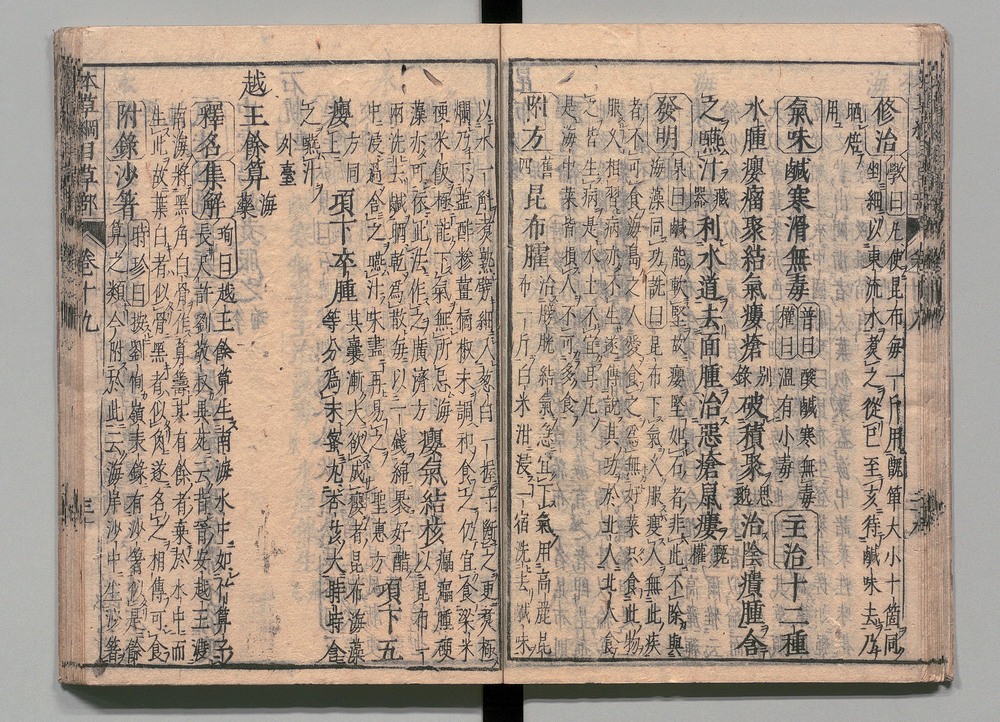 修治 斅曰凡使昆布每一斤用甑箄大小十箇同
剉細以東流水煮之從巳至亥待鹹味去乃
晒焙
用
氣味鹹寒滑無毒 普曰酸鹹寒無毒
權曰溫有小毒 主治十二種
水腫癭瘤聚結氣瘻瘡 别錄 破積聚 思邈 治陰㿉腫含
之嚥汁 藏器 利水道去面腫治惡瘡鼠瘻 甄權
發明 杲曰鹹能軟堅故癭堅如石者非此不除與
海藻同功詵曰昆布下氣久服瘦人無此疾
者不可食海島之人愛食之爲無好菜只食此物
服久相習病亦不生遂傳說其功於北人北人食
之皆生病是水土不宜耳凡
是海中菜皆損人不可多食
附方 舊四 昆布臛 治膀胱結氣急宜下氣用高麗昆
布一斤白米泔浸一宿洗去鹹味
以水一斛煮熟劈細入葱白一握寸斷之更煮極
爛乃下鹽酢糝薑橘椒末調和食之仍宜食粱米
粳米飯極能下氣無所忌海
藻亦可依此法作之廣濟方 癭氣結核 瘰瘰腫硬
以昆布一
兩洗去鹹晒乾爲散每以一錢綿裹好醋
中浸過含之嚥汁味盡再易之 聖惠方 項下五
癭 方同上 項下卒腫 其囊漸大欲成癭者昆布海藻
等分爲末蜜丸杏核大時時含
之嚥汁
外臺
越王餘算 海藥
釋名集解 珣曰越王餘算生南海水中如竹算子
長尺許劉敬叔異苑云昔晉安越王渡
南海將黑角白骨作算籌其有餘者棄於水中而
生此故葉白者似骨黑者似角遂名之相傳可食
附錄沙箸 時珍曰按劉恂嶺表錄有沙箸似是餘
算之類今附於此云海岸沙中生沙箸
本草綱目草部 卷十九